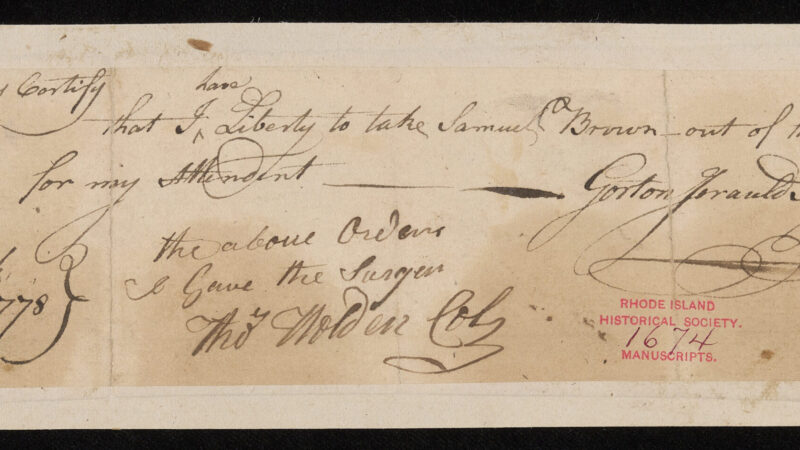 Certify
that I have Liberty to take Samuel Brown out of
for my Attendent
Gorton Jerauld
the above Orders
I Gave the Surgen
Thos Holden Col
778
RHODE ISLAND
HISTORICAL SOCIETY.
1674
MANUSCRIPTS.